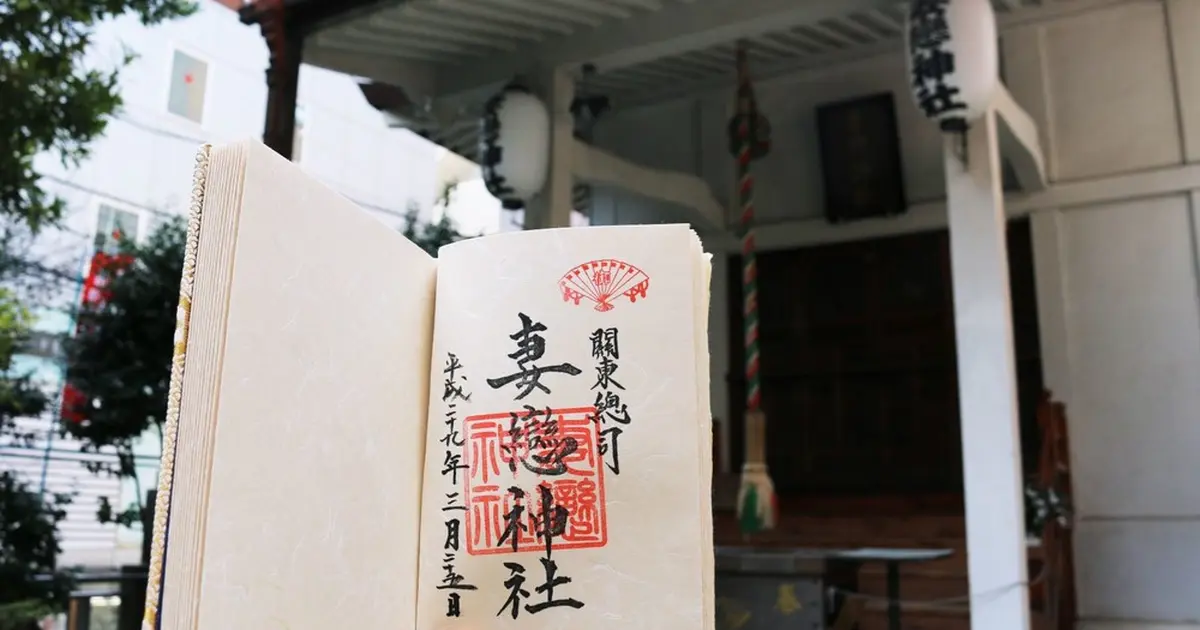 關東總司
妻戀神社
平成二十九年三月二十五日
妻戀神社
神社